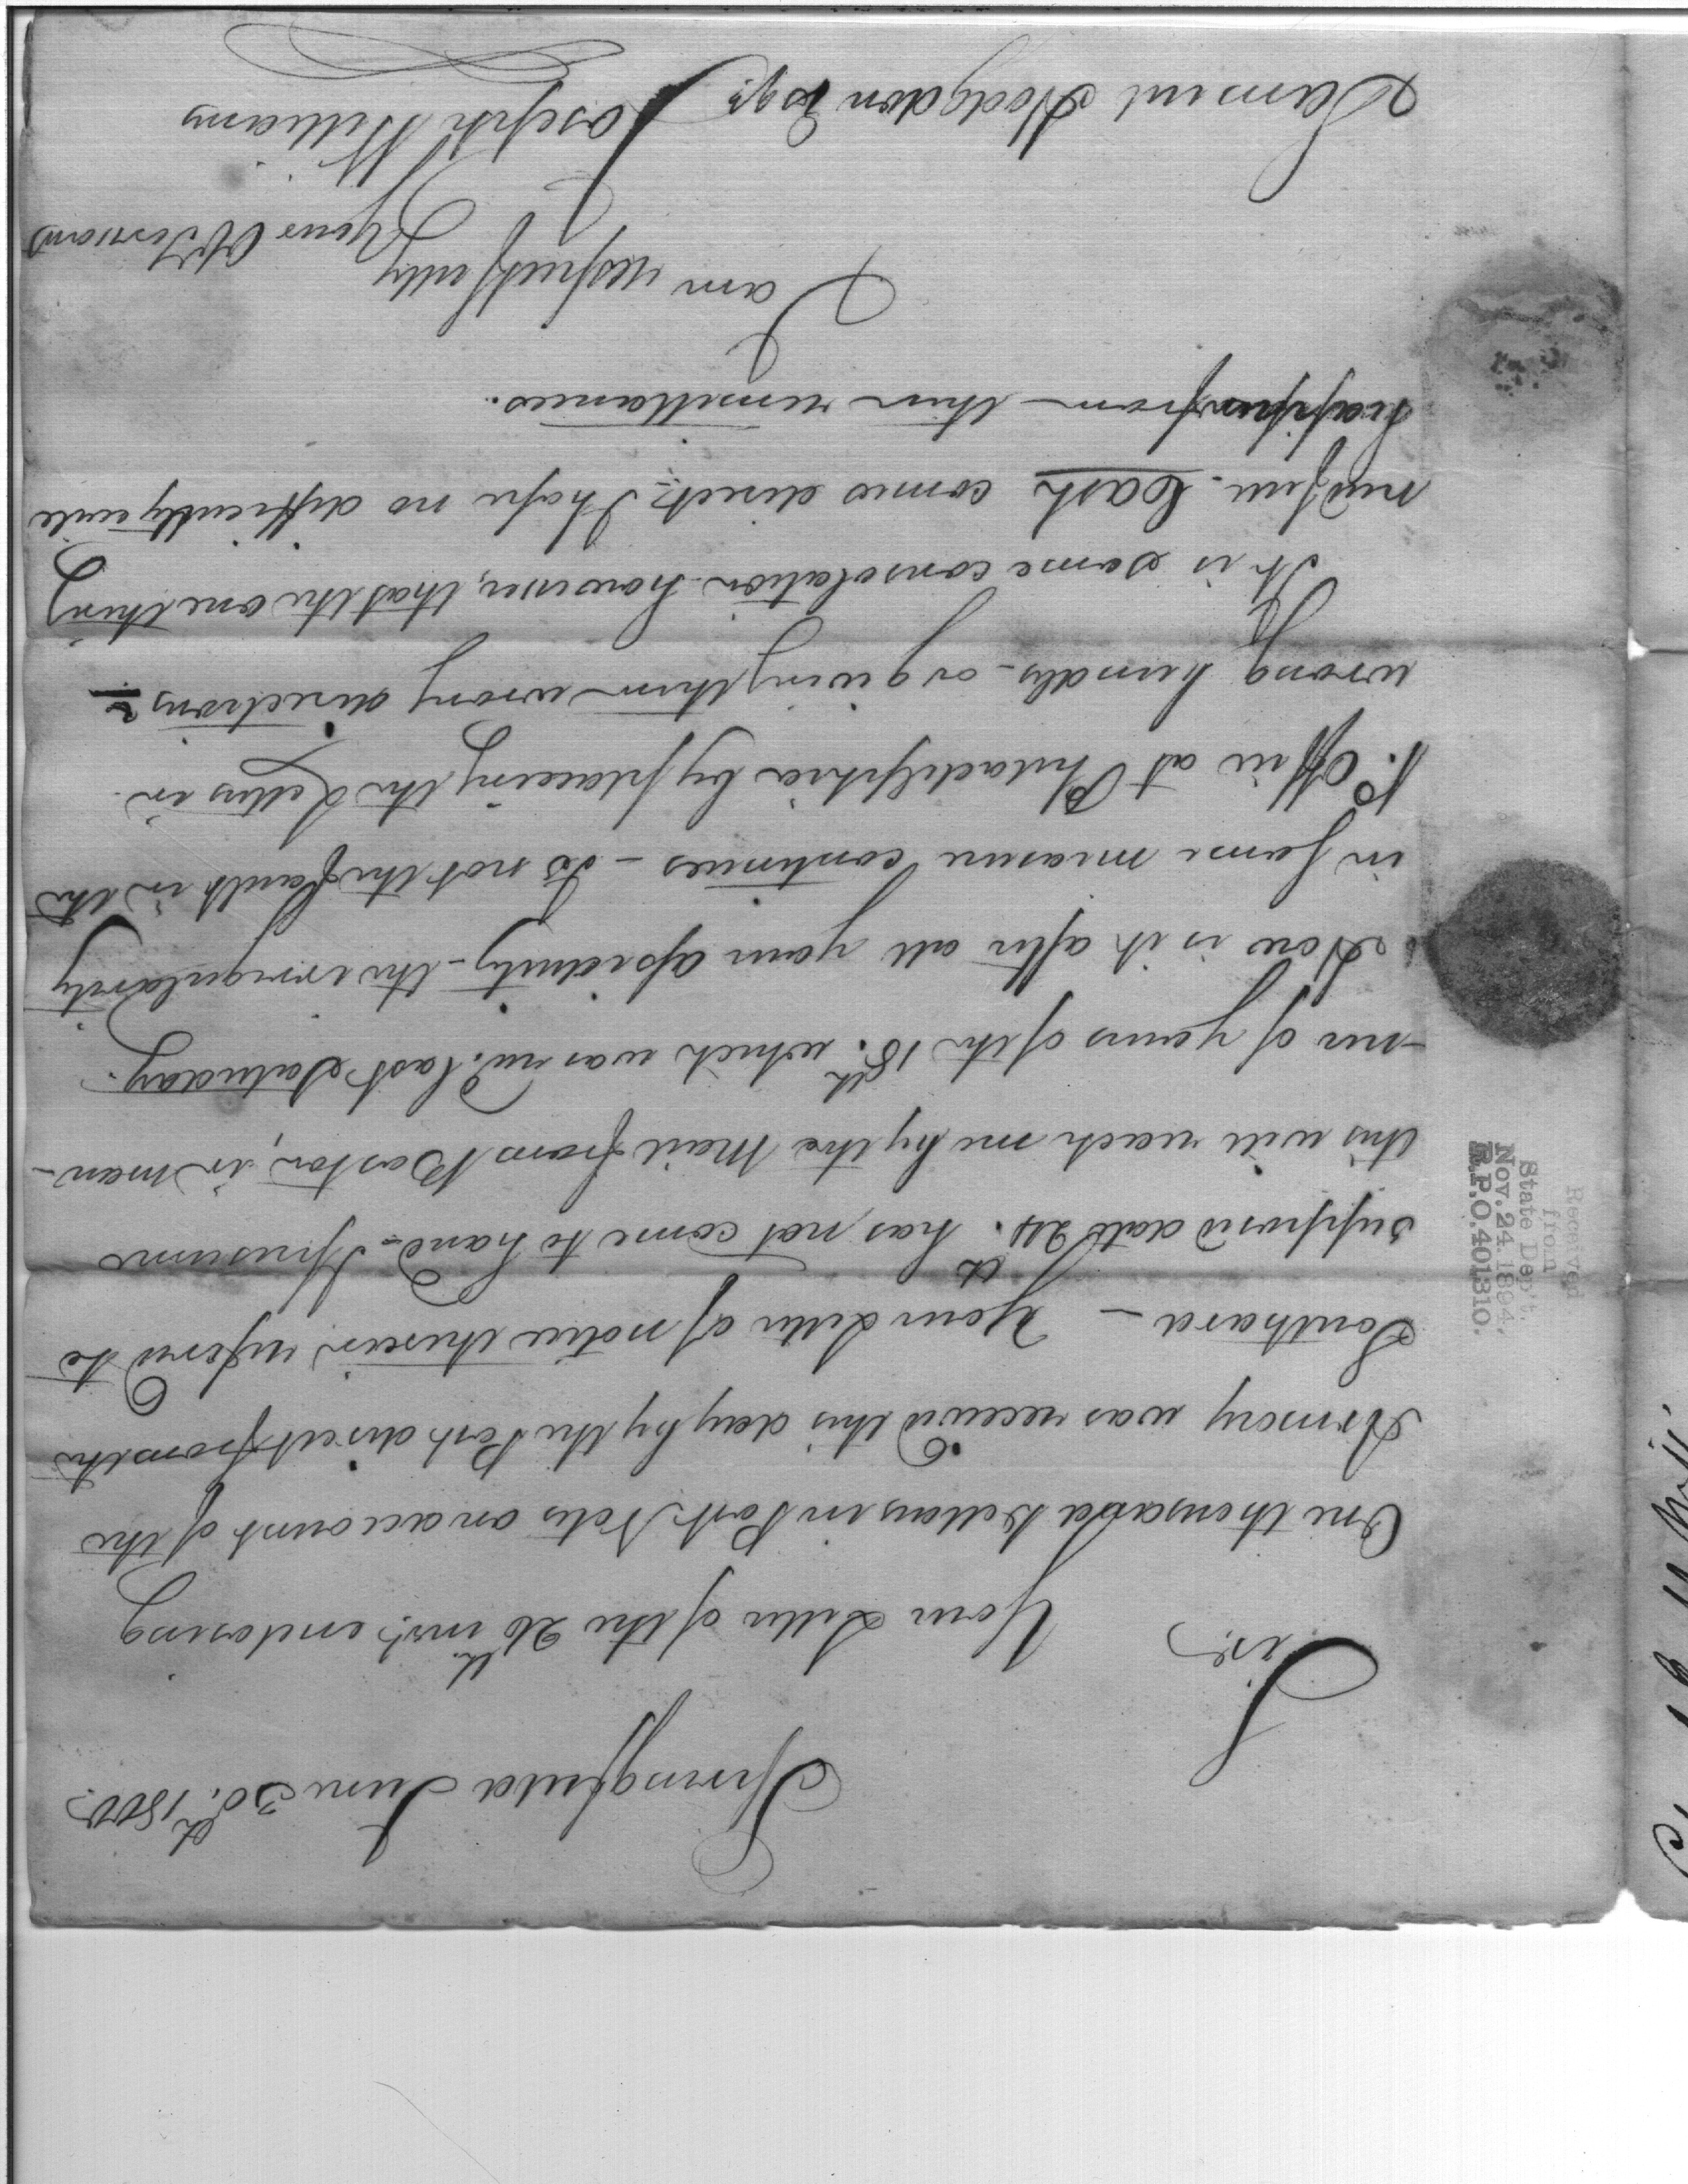 Springfield June 30th. 1800.
Sir,
Your Letter of the 26th inst. enclosing
One thousand Dollars in Post Notes on account of the
Armory was received this day by the Post direct from the
Southard — Your Letter of notice therein refered to
supposed date 24th. has not come to hand — I presume
this will reach me by the Mail from Boston, in man-
-ner of yours of the 18th. which was recd. last Saturday.
How is it after all your assiduity — the irregularity
in some measure continues — Is not the fault in the
P. Office at Philadelphia by placing the Letters in
wrong bundles — or giving them wrong directions?
It is some consolation however, that the one thing
needful — Cash comes direct — I hope no difficulty will
happen from their remittances.
I am respectfully
Your Ob. Servant
Joseph Williams
Samuel Hodgdon Esqr.
Received
from
State Dep't.
Nov. 24 1894.
R.P.O. 401310.